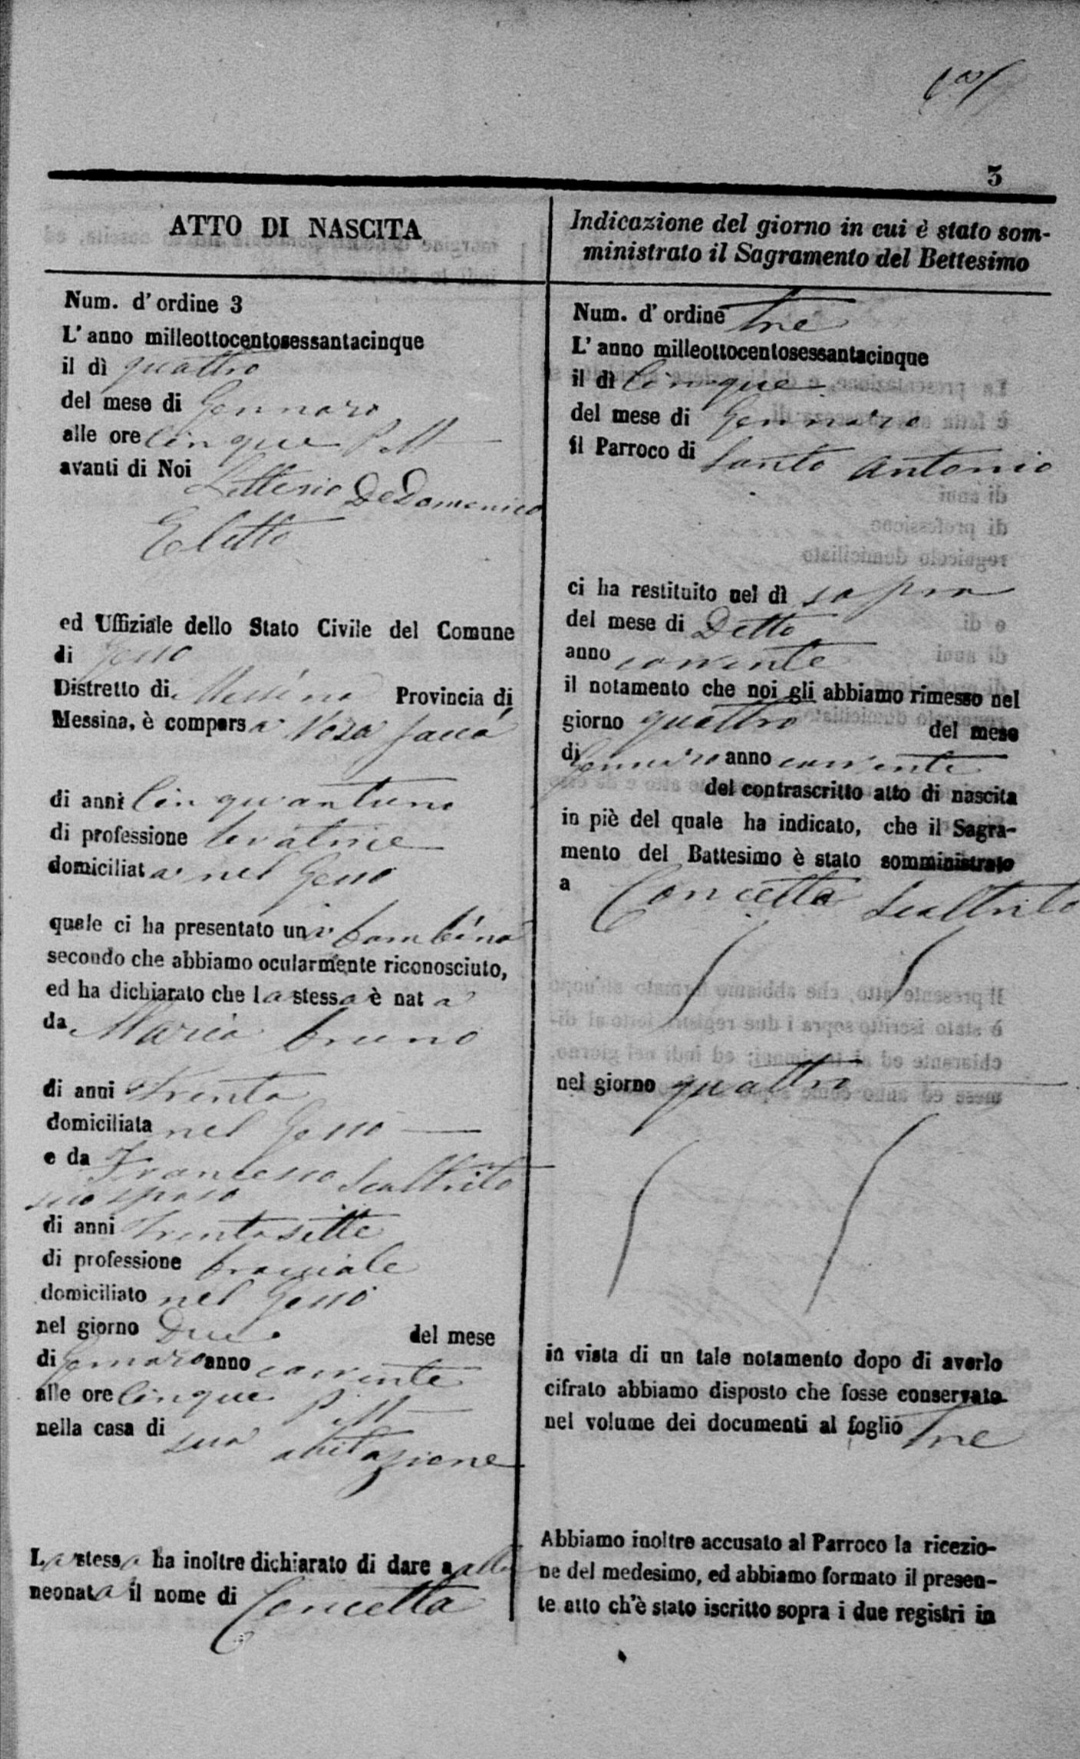 3
ATTO DI NASCITA
Num. d'ordine 3
L'anno milleottocentosessantacinque
il dì quattro
del mese di Gennaro
alle ore cinque P. M
avanti di Noi Letterio De Domenico
Eletto
ed Uffiziale dello Stato Civile del Comune
di Gesso
Distretto di Messina Provincia di
Messina, è comparsa
di anni cinquantuno
di professione levatrice
domiciliata nel Gesso
quale ci ha presentato una bambina
secondo che abbiamo ocularmente riconosciuto,
ed ha dichiarato che la stessa è nata
da Maria Bruno
di anni Trenta
domiciliata nel Gesso
e da Francesco Scaltrito
suo sposo
di anni Trentasette
di professione bracciale
domiciliato nel Gesso
nel giorno Due del mese
di Gennaro anno corrente
alle ore cinque P. M
nella casa di sua abitazione
La stessa ha inoltre dichiarato di dare a alla
neonata il nome di Concetta
Indicazione del giorno in cui è stato som-
ministrato il Sagramento del Bettesimo
Num. d'ordine tre
L'anno milleottocentosessantacinque
il dì Cinque
del mese di Gennaro
il Parroco di Santo Antonio
ci ha restituito nel dì sopra
del mese di Detto
anno corrente
il notamento che noi gli abbiamo rimesso nel
giorno quattro del mese
di Gennaro anno corrente
del contrascritto atto di nascita
in piè del quale ha indicato, che il Sagra-
mento del Battesimo è stato somministrato
a Concetta Scaltrito
nel giorno quattro
in vista di un tale notamento dopo di averlo
cifrato abbiamo disposto che fosse conservato
nel volume dei documenti al foglio Tre
Abbiamo inoltre accusato al Parroco la ricezio-
ne del medesimo, ed abbiamo formato il presen-
te atto ch'è stato iscritto sopra i due registri in